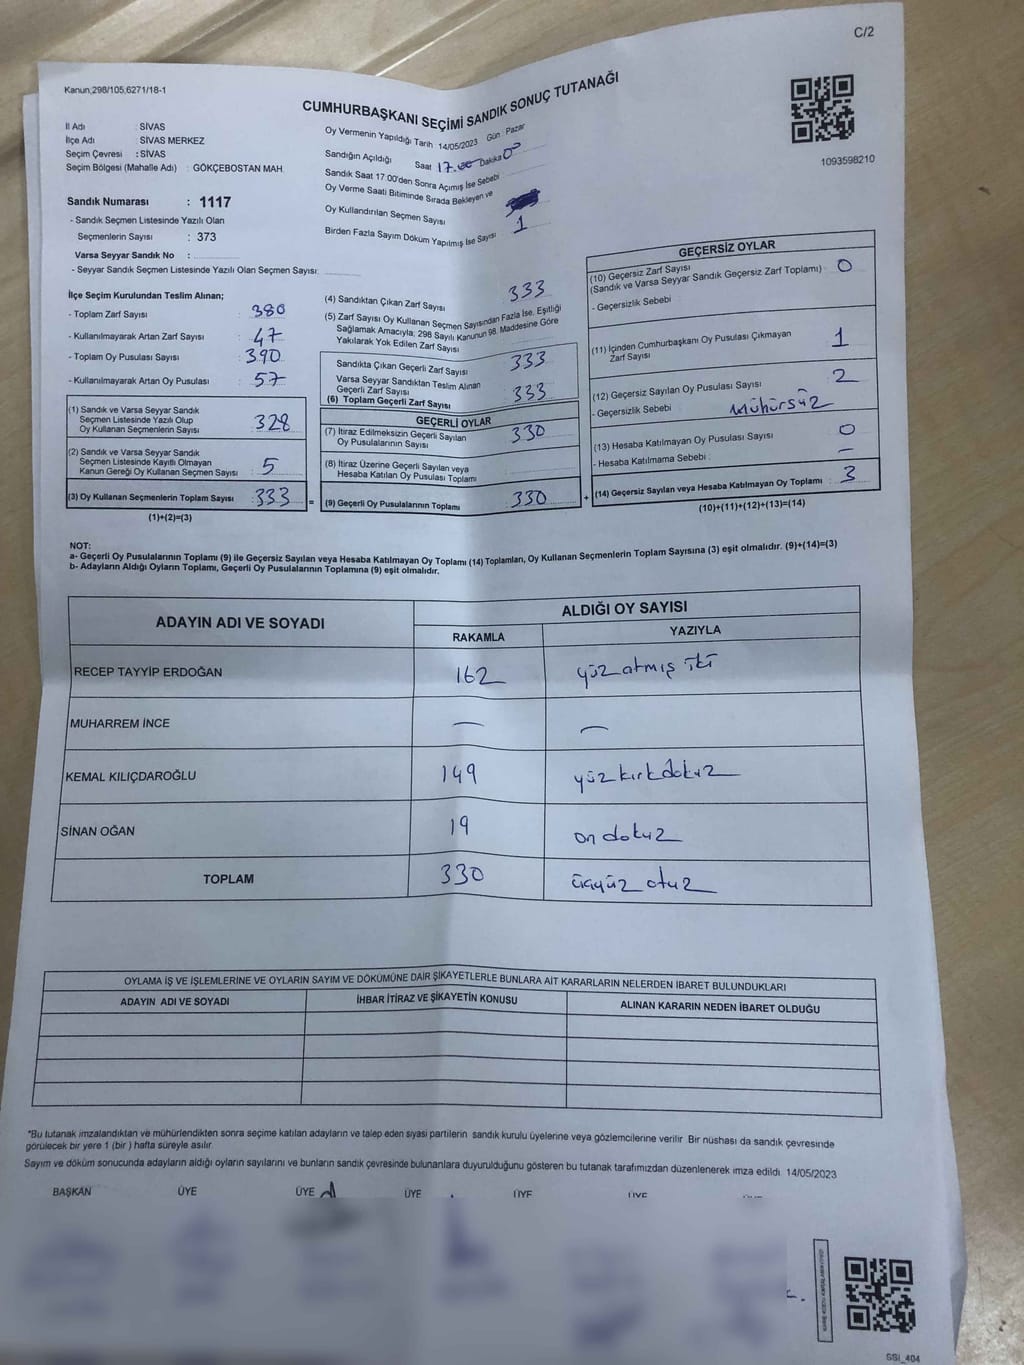 C/2
Kanun;298/105,6271/18-1
CUMHURBAŞKANI SEÇİMİ SANDIK SONUÇ TUTANAĞI
1093598210
İl Adı : SİVAS
İlçe Adı : SİVAS MERKEZ
Seçim Çevresi : SİVAS
Seçim Bölgesi (Mahalle Adı) : GÖKÇEBOSTAN MAH.
Sandık Numarası : 1117
- Sandık Seçmen Listesinde Yazılı Olan
Seçmenlerin Sayısı : 373
Varsa Seyyar Sandık No :
- Seyyar Sandık Seçmen Listesinde Yazılı Olan Seçmen Sayısı:
Oy Vermenin Yapıldığı Tarih 14/05/2023 Gün : Pazar
Sandığın Açıldığı Saat 17.00 Dakika 00
Sandık Saat 17.00'den Sonra Açımış İse Sebebi
Oy Verme Saati Bitiminde Sırada Bekleyen ve
Oy Kullandırılan Seçmen Sayısı
Birden Fazla Sayım Döküm Yapılmış İse Sayısı 1
İlçe Seçim Kurulundan Teslim Alınan;
- Toplam Zarf Sayısı : 380
- Kullanılmayarak Artan Zarf Sayısı : 47
- Toplam Oy Pusulası Sayısı : 390
- Kullanılmayarak Artan Oy Pusulası : 57
(1) Sandık ve Varsa Seyyar Sandık
Seçmen Listesinde Yazılı Olup
Oy Kullanan Seçmenlerin Sayısı : 328
(2) Sandık ve Varsa Seyyar Sandık
Seçmen Listesinde Kayıtlı Olmayan
Kanun Gereği Oy Kullanan Seçmen Sayısı : 5
(3) Oy Kullanan Seçmenlerin Toplam Sayısı : 333 =
(1)+(2)=(3)
(4) Sandıktan Çıkan Zarf Sayısı 333
(5) Zarf Sayısı Oy Kullanan Seçmen Sayısından Fazla İse, Eşitliği
Sağlamak Amacıyla; 298 Sayılı Kanunun 98. Maddesine Göre
Yakılarak Yok Edilen Zarf Sayısı
Sandıkta Çıkan Geçerli Zarf Sayısı : 333
Varsa Seyyar Sandıktan Teslim Alınan
Geçerli Zarf Sayısı
(6) Toplam Geçerli Zarf Sayısı : 333
GEÇERLİ OYLAR
(7) İtiraz Edilmeksizin Geçerli Sayılan
Oy Pusulalarının Sayısı : 330
(8) İtiraz Üzerine Geçerli Sayılan veya
Hesaba Katılan Oy Pusulası Toplamı
(9) Geçerli Oy Pusulalarının Toplamı : 330 +
GEÇERSİZ OYLAR
(10) Geçersiz Zarf Sayısı
(Sandık ve Varsa Seyyar Sandık Geçersiz Zarf Toplamı) : 0
- Geçersizlik Sebebi :
(11) İçinden Cumhurbaşkanı Oy Pusulası Çıkmayan
Zarf Sayısı : 1
(12) Geçersiz Sayılan Oy Pusulası Sayısı : 2
- Geçersizlik Sebebi : Mühürsüz
(13) Hesaba Katılmayan Oy Pusulası Sayısı : 0
- Hesaba Katılmama Sebebi : —
(14) Geçersiz Sayılan veya Hesaba Katılmayan Oy Toplamı : 3
(10)+(11)+(12)+(13)=(14)
NOT:
a- Geçerli Oy Pusulalarının Toplamı (9) ile Geçersiz Sayılan veya Hesaba Katılmayan Oy Toplamı (14) Toplamları, Oy Kullanan Seçmenlerin Toplam Sayısına (3) eşit olmalıdır. (9)+(14)=(3)
b- Adayların Aldığı Oyların Toplamı, Geçerli Oy Pusulalarının Toplamına (9) eşit olmalıdır.
ADAYIN ADI VE SOYADI ALDIĞI OY SAYISI
RAKAMLA YAZIYLA
RECEP TAYYİP ERDOĞAN 162 yüz atmış iki
MUHARREM İNCE — —
KEMAL KILIÇDAROĞLU 149 yüz kırk dokuz
SİNAN OĞAN 19 on dokuz
TOPLAM 330 üçyüz otuz
OYLAMA İŞ VE İŞLEMLERİNE VE OYLARIN SAYIM VE DÖKÜMÜNE DAİR ŞİKAYETLERLE BUNLARA AİT KARARLARIN NELERDEN İBARET BULUNDUKLARI
ADAYIN ADI VE SOYADI İHBAR İTİRAZ VE ŞİKAYETİN KONUSU ALINAN KARARIN NEDEN İBARET OLDUĞU
*Bu tutanak imzalandıktan ve mühürlendikten sonra seçime katılan adayların ve talep eden siyasi partilerin sandık kurulu üyelerine veya gözlemcilerine verilir. Bir nüshası da sandık çevresinde
görülecek bir yere 1 (bir) hafta süreyle asılır.
Sayım ve döküm sonucunda adayların aldığı oyların sayılarını ve bunların sandık çevresinde bulunanlara duyurulduğunu gösteren bu tutanak tarafımızdan düzenlenerek imza edildi. 14/05/2023
BAŞKAN ÜYE ÜYE ÜYE ÜYE ÜYE
SSI_404